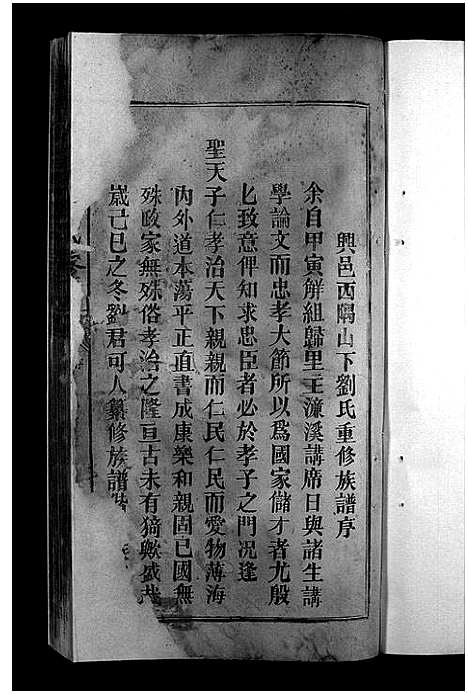 興邑西隅山下劉氏重修族譜序
余自甲寅解組歸里主濂溪講席日與諸生講
學論文而忠孝大節所以爲國家儲才者尤殷
匕致意俾知求忠臣者必於孝子之門況逢
聖天子仁孝治天下親親而仁民仁民而愛物薄海
內外道本蕩平正直書成康樂和親固已國無
殊政家無殊俗孝治之隆亘古未有猗歟盛哉
歲己巳之冬劉君可人纂修族譜